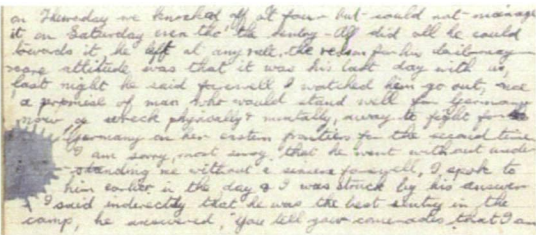 on Thursday we knocked off at four but could not manage
it on Saturday even tho' the sentry - Alf did all he could
towards it, he left at any rate, the reason for his
more attitude was that it was his last day with us,
last night he said farewell I watched him go out, once
a promise of man who would stand well for Germany
now a wreck physically & mentally, away to fight for
Germany on her eastern frontiers for the second time
I am sorry, most sorry that he went without under-
standing me without a sincere farewell, I spoke to
him earlier in the day & I was struck by his answer
I said indirectly that he was the best sentry in the
camp, he answered, "You tell your comerades that I am